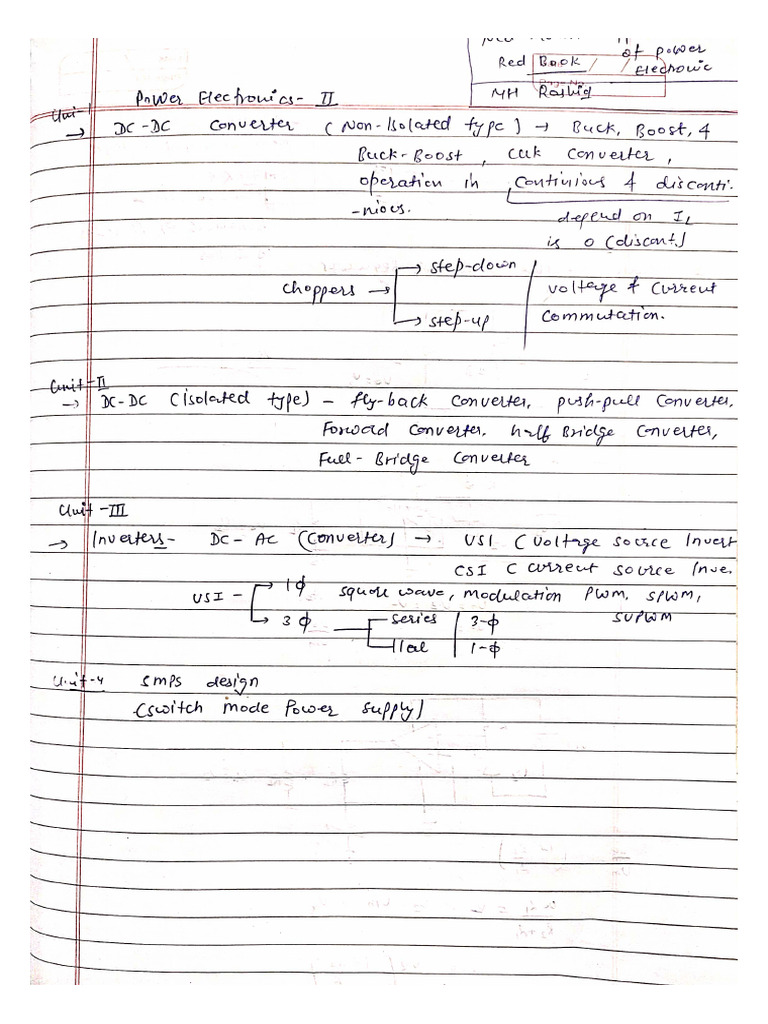 of power
Red Book / / Electronic
MH Rashig
Power Electronics- II
Uni-1
→ DC-DC Converter (Non-Isolated type) → Buck, Boost, &
Buck-Boost, CUK Converter,
operation in Continious & disconti.
-nious. depend on IL
is 0 (discont.)
Choppers → → step-down voltage & Current
→ step-up Commutation.
Unit-II
→ DC-DC (isolated type) - fly-back Converter, push-pull Converter,
Forward Converter. half Bridge Converter,
Full-Bridge Converter
Unit-III
→ Inverters- DC-AC (Converters) → VSI (voltage source Invert
CSI ( current source Inve.
VSI - → 1ϕ square wave, modulation PWM, SPWM,
→ 3ϕ series 3-ϕ SVPWM
llel 1-ϕ
Unit-4 SMPS design
(switch mode Power supply)